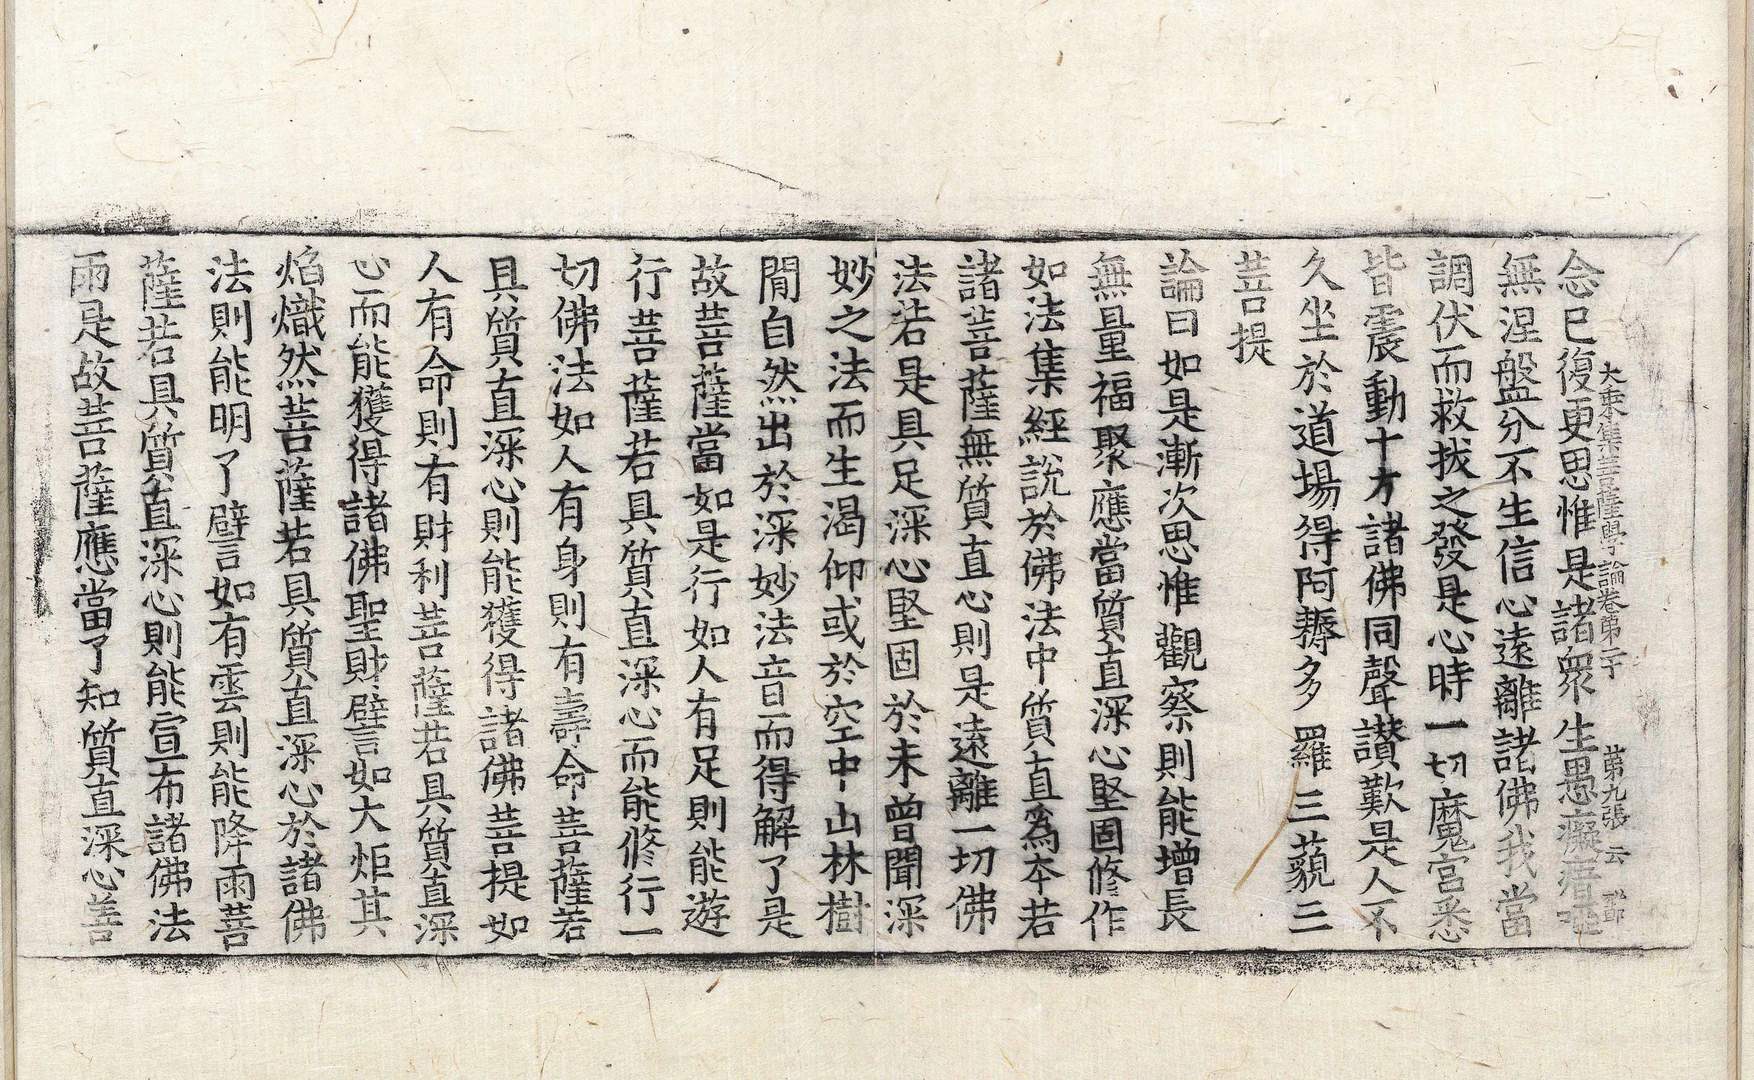 大乘集菩薩學論卷第二十　第九張　云
念已復更思惟是諸衆生愚癡瘖啞
無涅盤分不生信心遠離諸佛我當
調伏而救拔之發是心時一切魔宫悉
皆震動十方諸佛同聲讃歎是人不
久坐於道場得阿耨多羅三藐三
菩提
論曰如是漸次思惟觀察則能增長
無量福聚應當質直深心堅固修作
如法集經說於佛法中質直爲本若
諸菩薩無質直心則是遠離一切佛
法若是具足深心堅固於未曽聞深
妙之法而生渴仰或於空中山林樹
閒自然出於深妙法音而得解了是
故菩薩當如是行如人有足則能遊
行菩薩若具質直深心而能修行一
切佛法如人有身則有壽命菩薩若
具質直深心則能獲得諸佛菩提如
人有命則有財利菩薩若具質直深
心而能獲得諸佛聖財譬如大炬其
焰熾然菩薩若具質直深心於諸佛
法則能明了譬如有雲則能降雨菩
薩若具質直深心則能宣布諸佛法
雨是故菩薩應當了知質直深心善